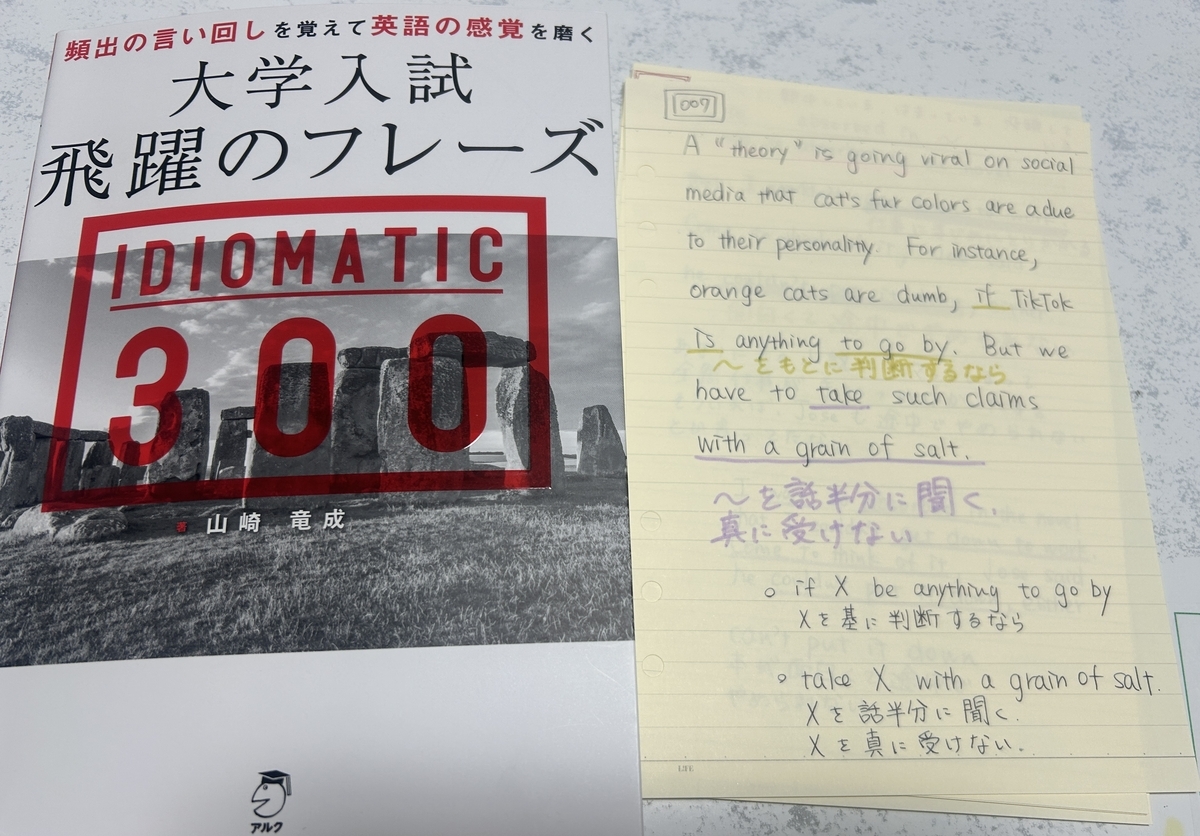 頻出の言い回しを覚えて英語の感覚を磨く
大学入試
飛躍のフレーズ
IDIOMATIC
300
著 山崎 竜成
アルク
007
A "theory" is going viral on social
media that cat's fur colors are a due
to their personality. For instance,
orange cats are dumb, if TikTok
is anything to go by. But we
〜をもとに判断するなら
have to take such claims
with a grain of salt.
〜を話半分に聞く、
真に受けない
○ if X be anything to go by
Xを基に判断するなら
○ take X with a grain of salt.
Xを話半分に聞く.
Xを真に受けない.
LIFE